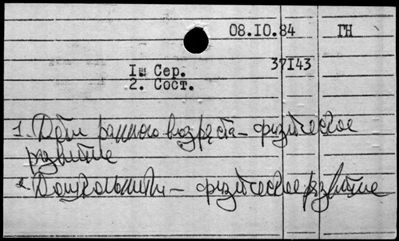 08.10.84 ГН
37143
1. Сер.
2. Сост.
1. Дети раннего возраста – физическое
развитие
2. Дошкольники – физическое развитие